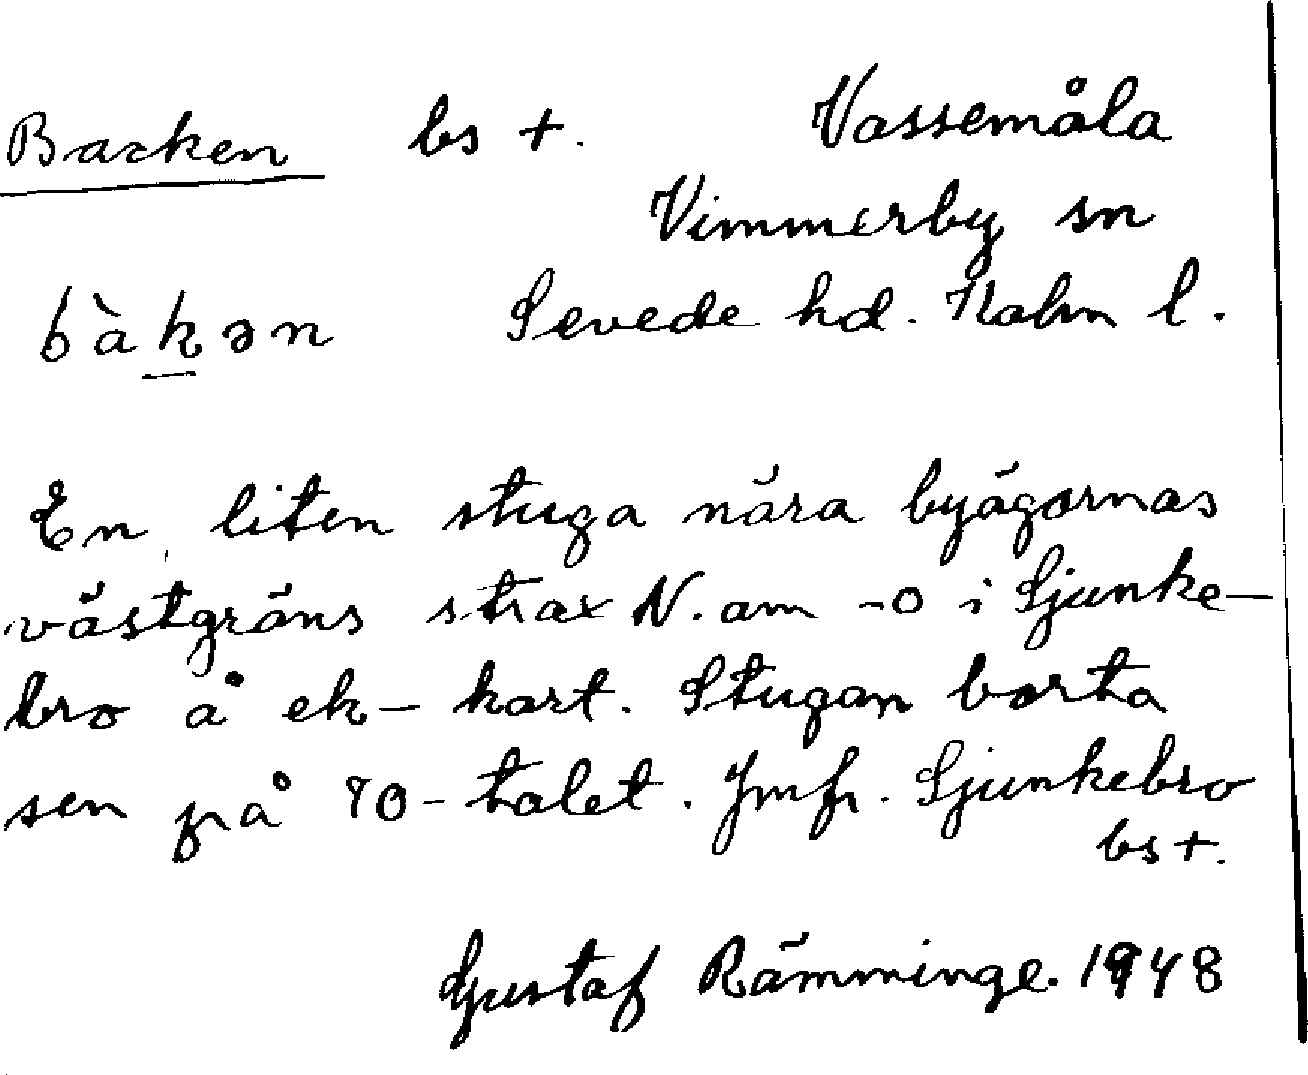 Backen bs +. Vassemåla
Vimmerby sn
bàkən Sevede hd. Kalm l.
En liten stuga nära byägornas
västgräns strax N. om -o i Sjunke-
bro å ek-kart. Stugan borta
sen på 70-talet. Jmfr. Sjunkebro
bs +.
Gustaf Rämminge. 1948